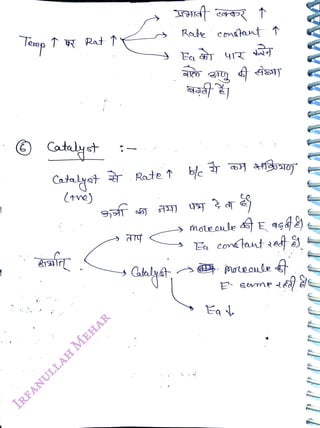 Temp ↑ पर Rat ↑ → प्रभावी टक्कर ↑
→ Rate constant ↑
→ Ea को पार करने
वाले अणु की संख्या
बढ़ती है।
⑥ Catalyst :-
Catalyst से Rate ↑ b/c ये कम सक्रियण
(+ve)
ऊर्जा का नया पथ देता है।
अर्थात् → ताप → molecule की E बढ़ती है।
→ Ea constant रहती है।
→ Catalyst → molecule की
E same रहती है।
→ Ea ↓
IRFANULLAH MEHAR